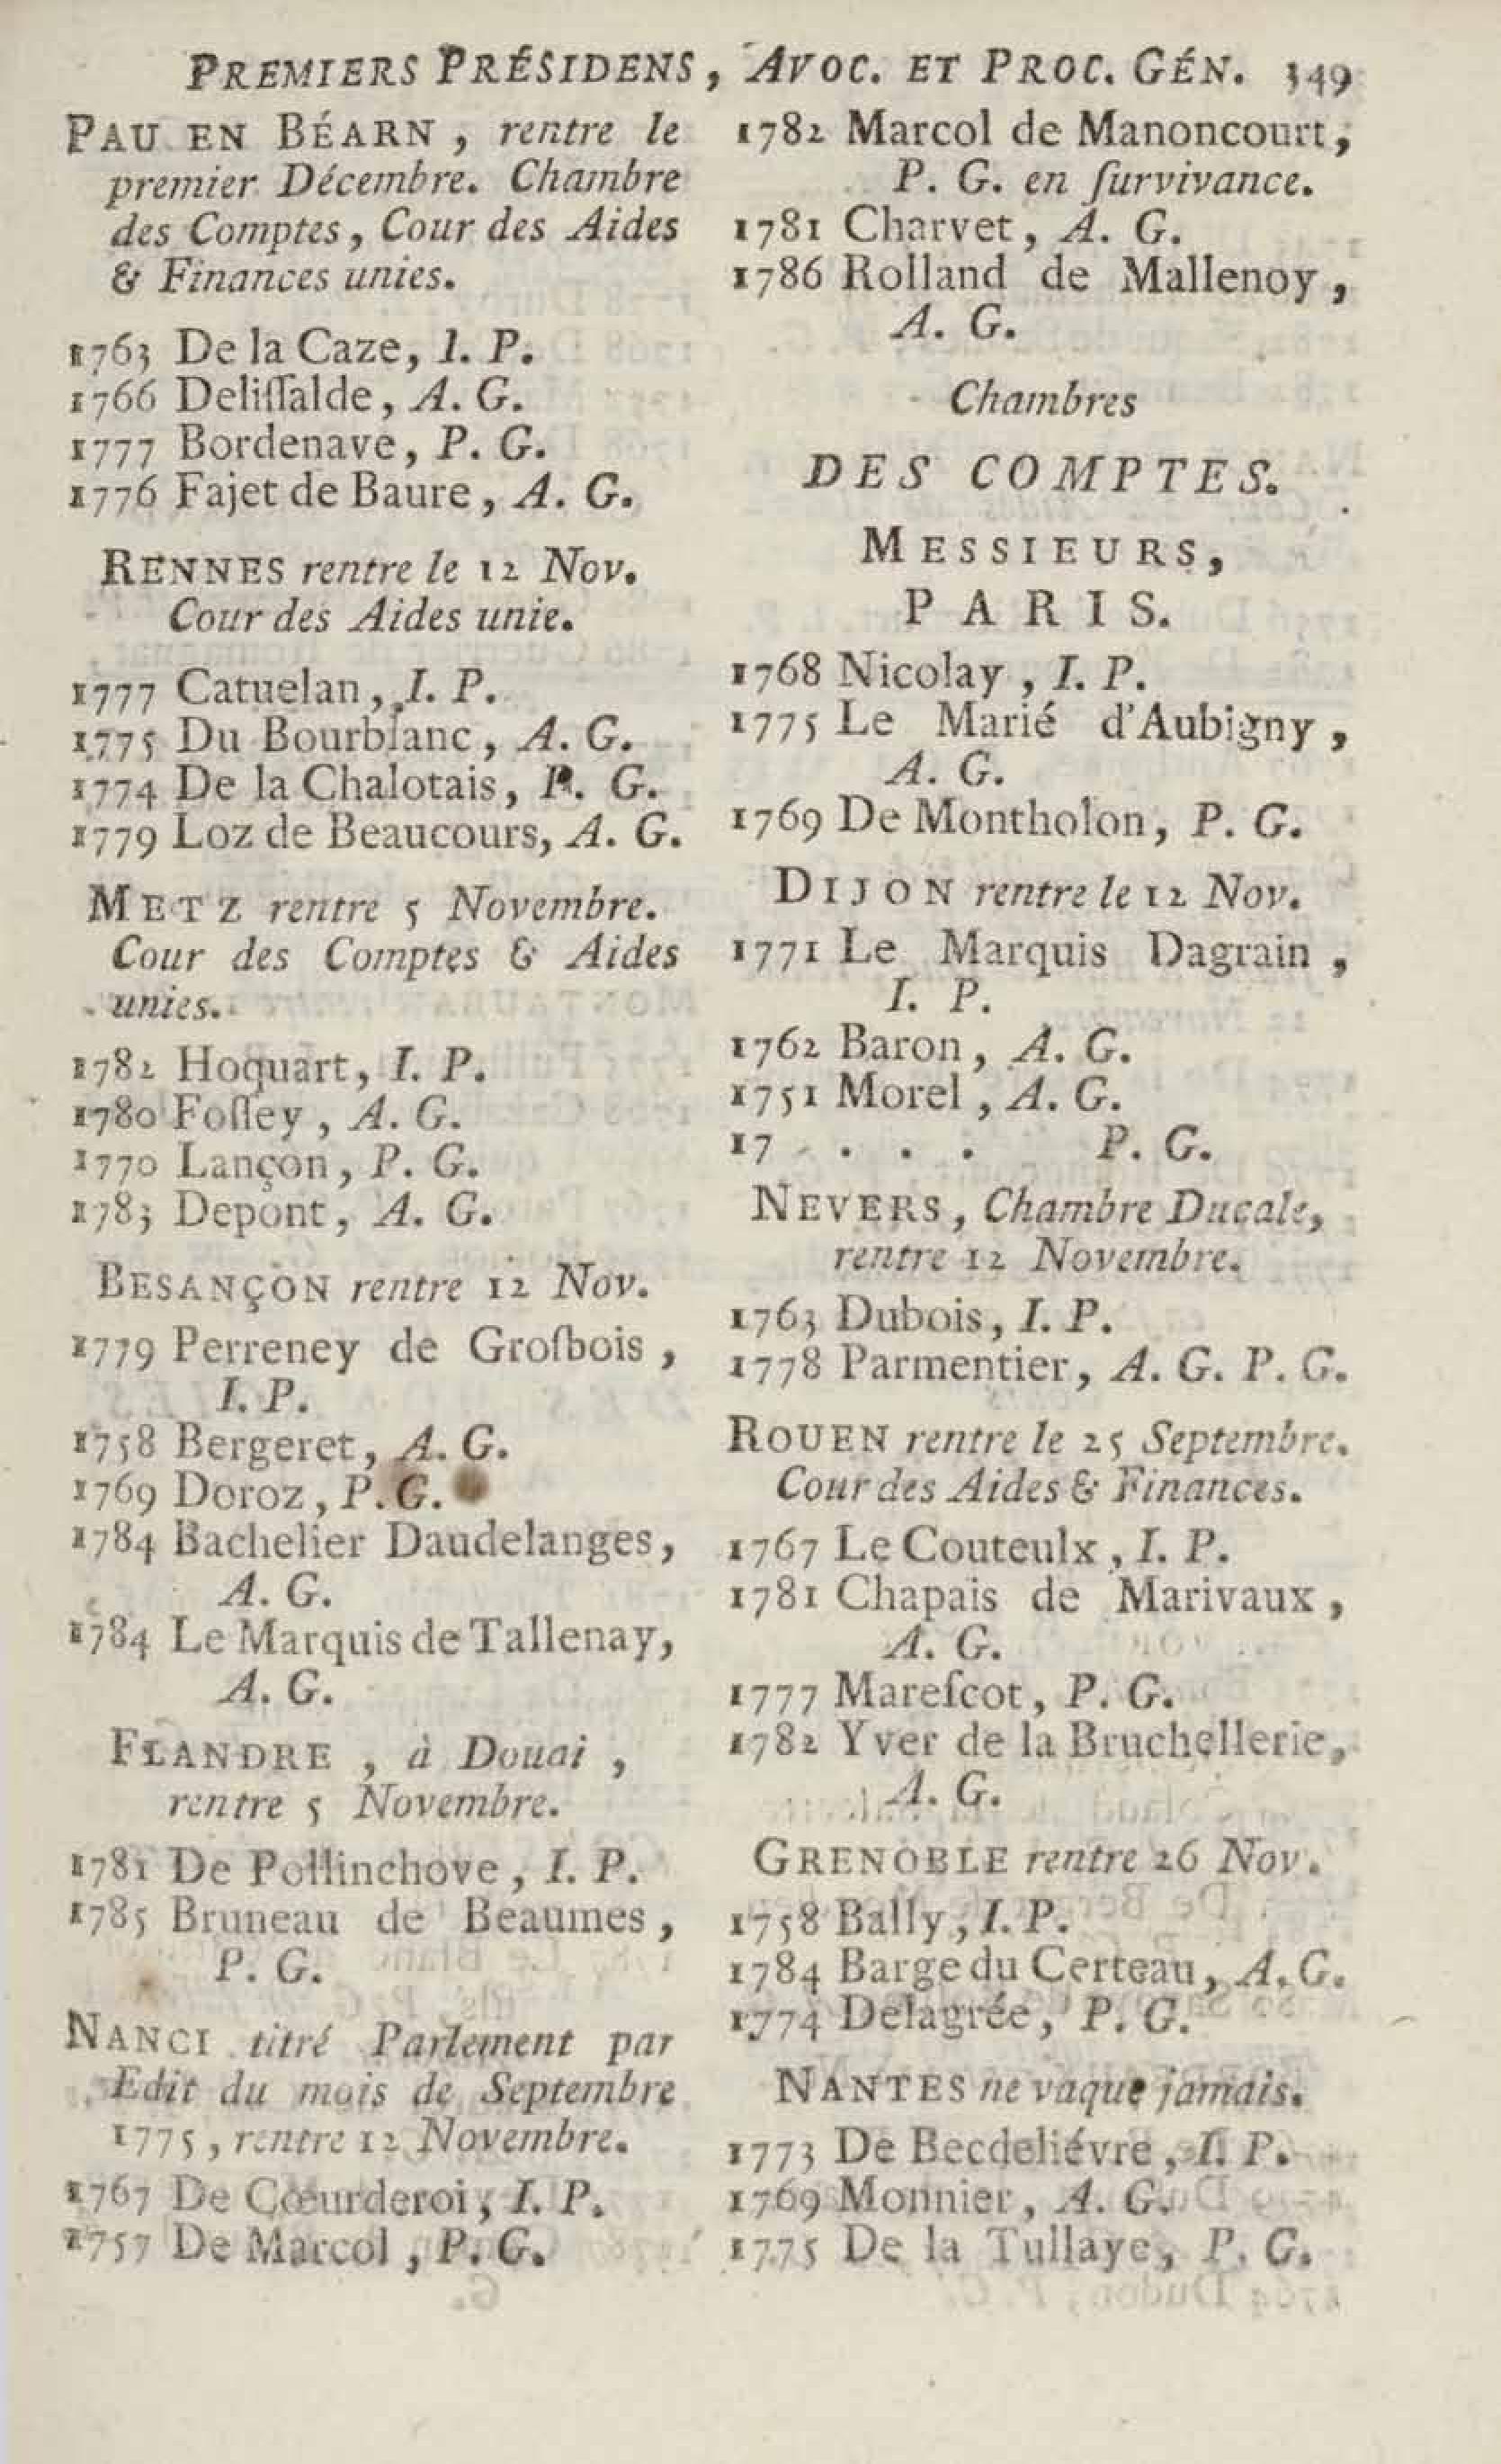 PREMIERS PRÉSIDENS, AVOC. ET PROC. GÉN. 349
PAU EN BÉARN, rentre le
premier Décembre. Chambre
des Comptes, Cour des Aides
& Finances unies.
1763 De la Caze, I. P.
1766 Deliſſalde, A. G.
1777 Bordenave, P. G.
1776 Fajet de Baure, A. G.
RENNES rentre le 12 Nov.
Cour des Aides unie.
1777 Catuelan, I. P.
1775 Du Bourblanc, A. G.
1774 De la Chalotais, P. G.
1779 Loz de Beaucours, A. G.
METZ rentre 5 Novembre.
Cour des Comptes & Aides
unies.
1782 Hoquart, I. P.
1780 Foſſey, A. G.
1770 Lançon, P. G.
1783 Depont, A. G.
BESANÇON rentre 12 Nov.
1779 Perreney de Groſbois,
I. P.
1758 Bergeret, A. G.
1769 Doroz, P. G.
1784 Bachelier Daudelanges,
A. G.
1784 Le Marquis de Tallenay,
A. G.
FLANDRE, à Douai,
rentre 5 Novembre.
1781 De Pollinchove, I. P.
1785 Bruneau de Beaumes,
P. G.
NANCI titré Parlement par
Edit du mois de Septembre
1775, rentre 12 Novembre.
1767 De Cœurderoi, I. P.
1757 De Marcol, P. G.
1782 Marcol de Manoncourt,
P. G. en ſurvivance.
1781 Charvet, A. G.
1786 Rolland de Mallenoy,
A. G.
Chambres
DES COMPTES.
MESSIEURS,
PARIS.
1768 Nicolay, I. P.
1775 Le Marié d'Aubigny,
A. G.
1769 De Montholon, P. G.
DIJON rentre le 12 Nov.
1771 Le Marquis Dagrain,
I. P.
1762 Baron, A. G.
1751 Morel, A. G.
17 . . . . P. G.
NEVERS, Chambre Ducale,
rentre 12 Novembre.
1763 Dubois, I. P.
1778 Parmentier, A. G. P. G.
ROUEN rentre le 25 Septembre.
Cour des Aides & Finances.
1767 Le Couteulx, I. P.
1781 Chapais de Marivaux,
A. G.
1777 Mareſcot, P. G.
1782 Yver de la Bruchellerie,
A. G.
GRENOBLE rentre 26 Nov.
1758 Bally, I. P.
1784 Barge du Certeau, A. G.
1774 Delagrée, P. G.
NANTES ne vaque jamais.
1773 De Becdeliévre, I. P.
1769 Monnier, A. G.
1775 De la Tullaye, P. G.